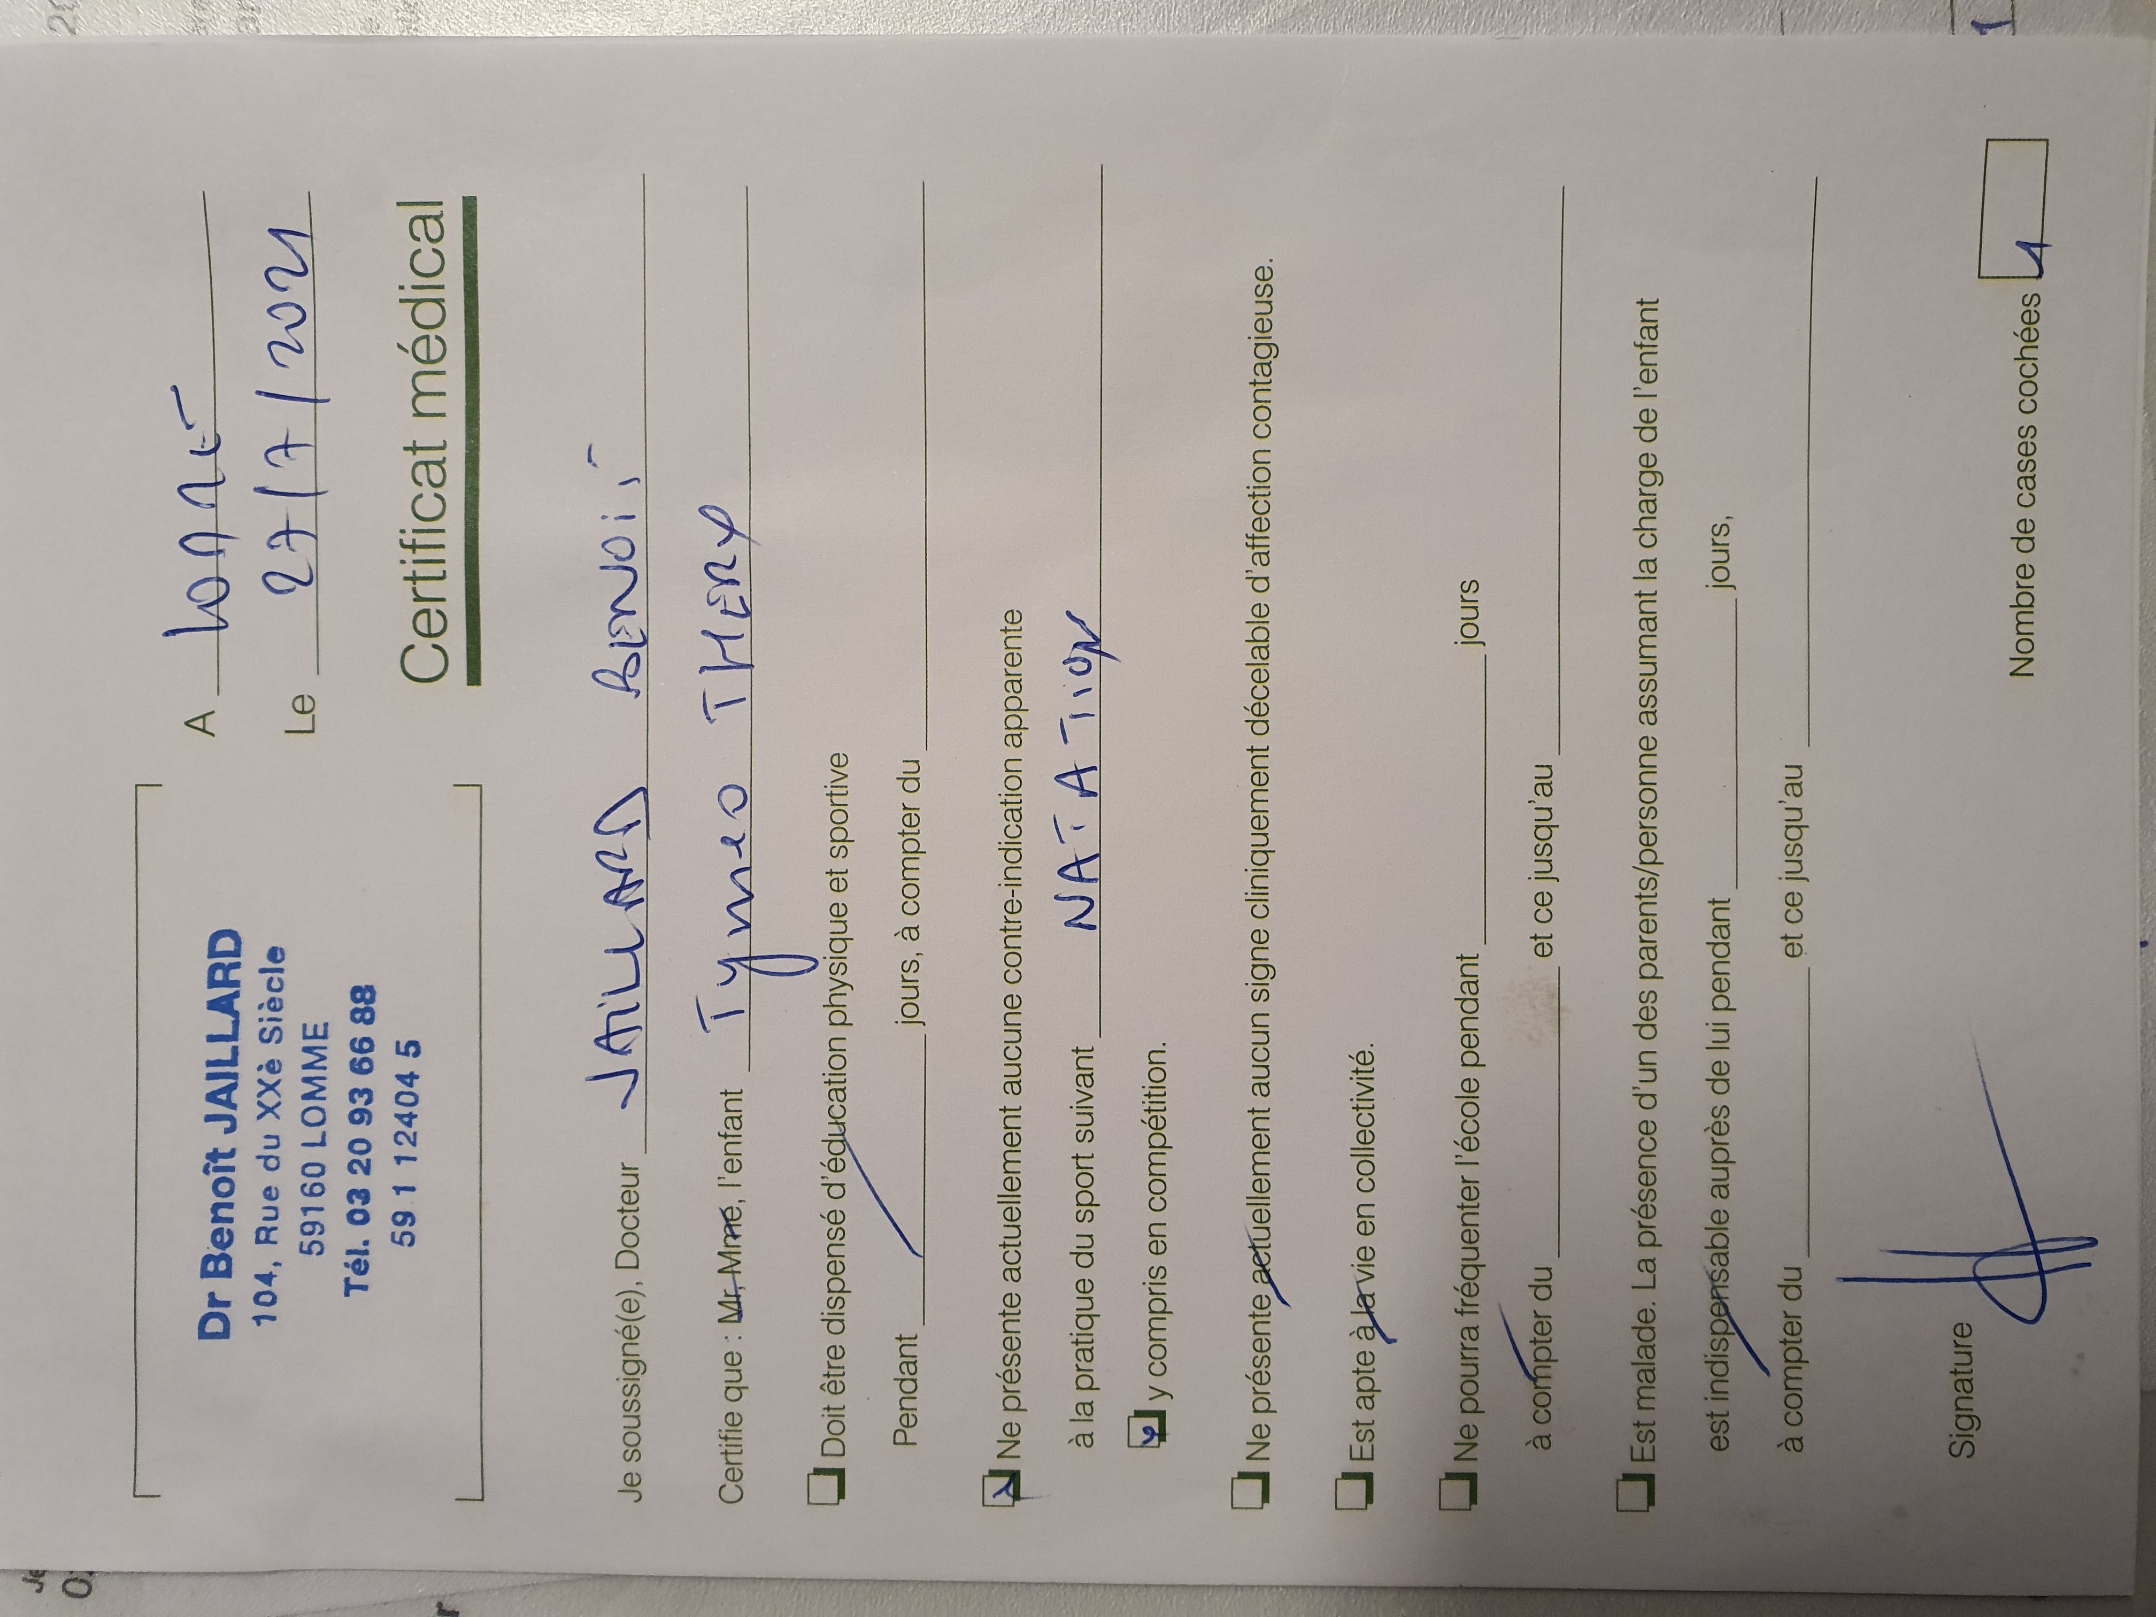 Dr Benoît JAILLARD
104, Rue du XXè Siècle
59160 LOMME
Tél. 03 20 93 66 88
59 1 12404 5
A
Le 27/7/2021
Certificat médical
Je soussigné(e), Docteur JAILLARD BENOIT
Certifie que : Mr, Mme, l'enfant Tymeo THERY
Doit être dispensé d'éducation physique et sportive
Pendant jours, à compter du
Ne présente actuellement aucune contre-indication apparente
à la pratique du sport suivant NATATION
y compris en compétition.
Ne présente actuellement aucun signe cliniquement décelable d'affection contagieuse.
Est apte à la vie en collectivité.
Ne pourra fréquenter l'école pendant jours
à compter du et ce jusqu'au
Est malade. La présence d'un des parents/personne assumant la charge de l'enfant
est indispensable auprès de lui pendant jours,
à compter du et ce jusqu'au
Signature
Nombre de cases cochées